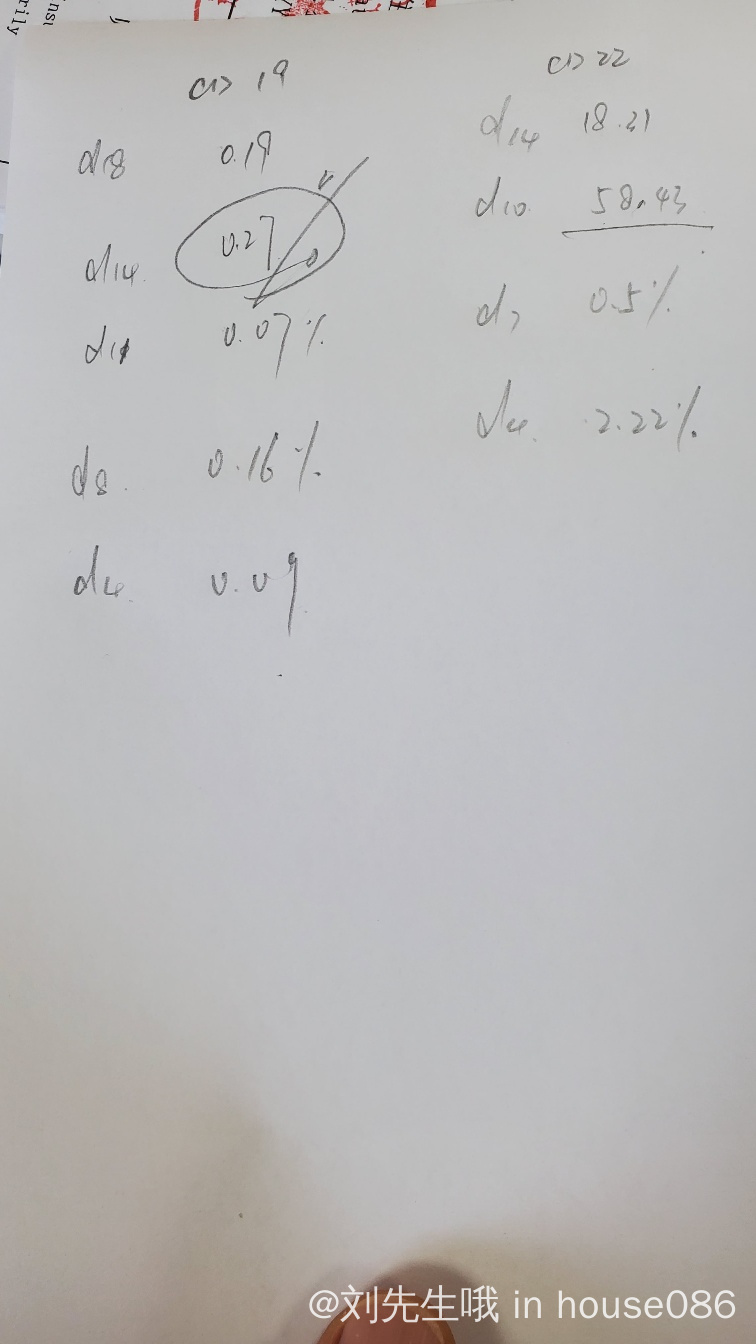 CD 19
d18 0.19
d14 0.27
d11 0.07%
d8 0.16%
d4 0.09
CD 22
d14 18.21
d10 58.43
d7 0.5%
d4 2.22%
rily
@刘先生哦 in house086